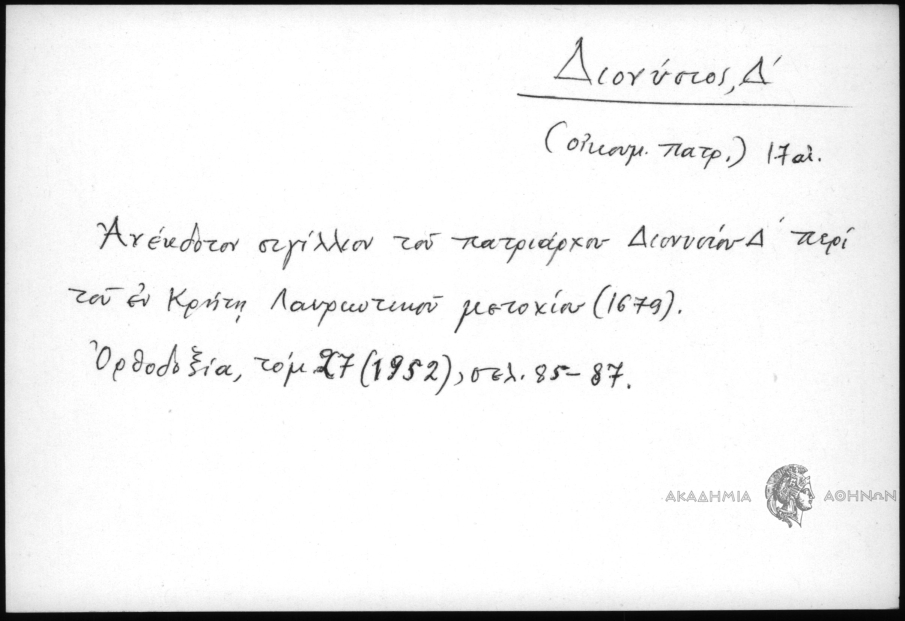 Διονύσιος, Δ΄
(οἰκουμ. πατρ.) 17 αἰ.
Ἀνέκδοτον σιγίλλιον τοῦ πατριάρχου Διονυσίου Δ΄ περί
τοῦ ἐν Κρήτῃ Λαυριωτικοῦ μετοχίου (1679).
Ὀρθοδοξία, τόμ. 27 (1952), σελ. 85-87.
ΑΚΑΔΗΜΙΑ ΑΘΗΝΩΝ